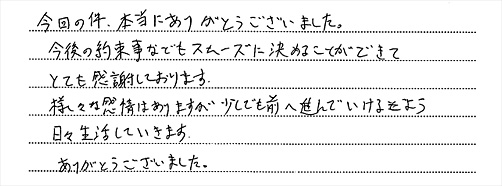 今回の件、本当にありがとうございました。
今後の約束事などもスムーズに決めることができて
とても感謝しております。
様々な感情はありますが少しでも前へ進んでいけるよう
日々生活していきます。
ありがとうございました。